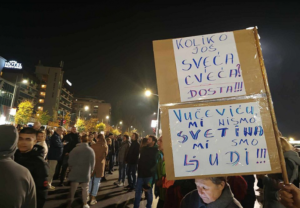 KOLIKO
JOŠ
SVEĆA,
CVEĆA!
DOSTA!!!
VUČEVIĆU,
MI NISMO
SVETINA
MI SMO
LJUDI!!!